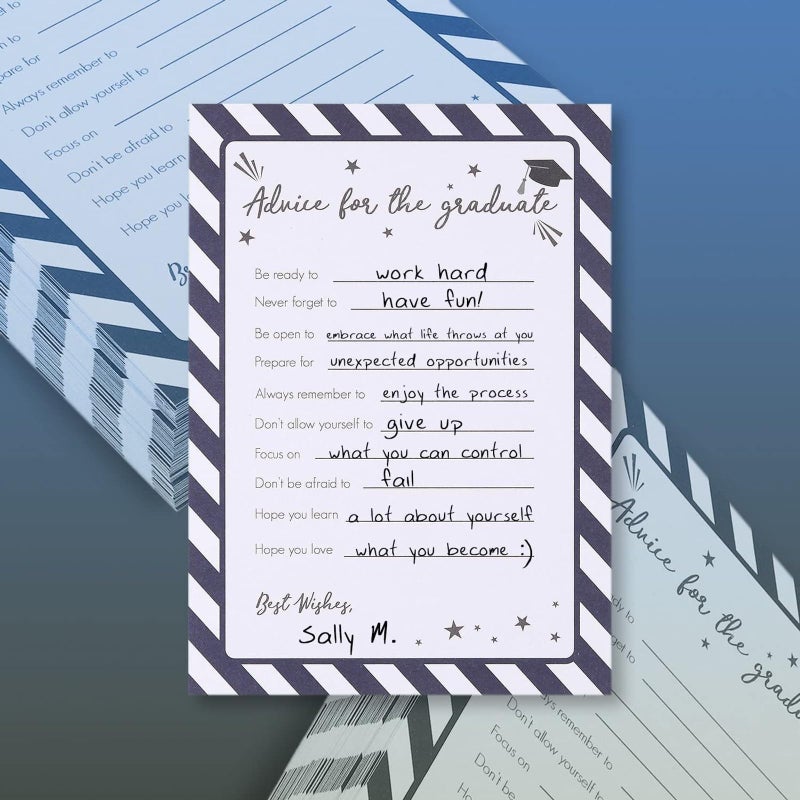 Advice for the graduate
Be ready to work hard
Never forget to have fun!
Be open to embrace what life throws at you
Prepare for unexpected opportunities
Always remember to enjoy the process
Don't allow yourself to give up
Focus on what you can control
Don't be afraid to fail
Hope you learn a lot about yourself
Hope you love what you become :)
Best Wishes,
Sally M.
Always remember to
Don't allow yourself to
Focus on
Don't be afraid to
Hope you learn
Hope you
Advice for the
Always remember to
Don't allow yourself to
Focus on
Don't be